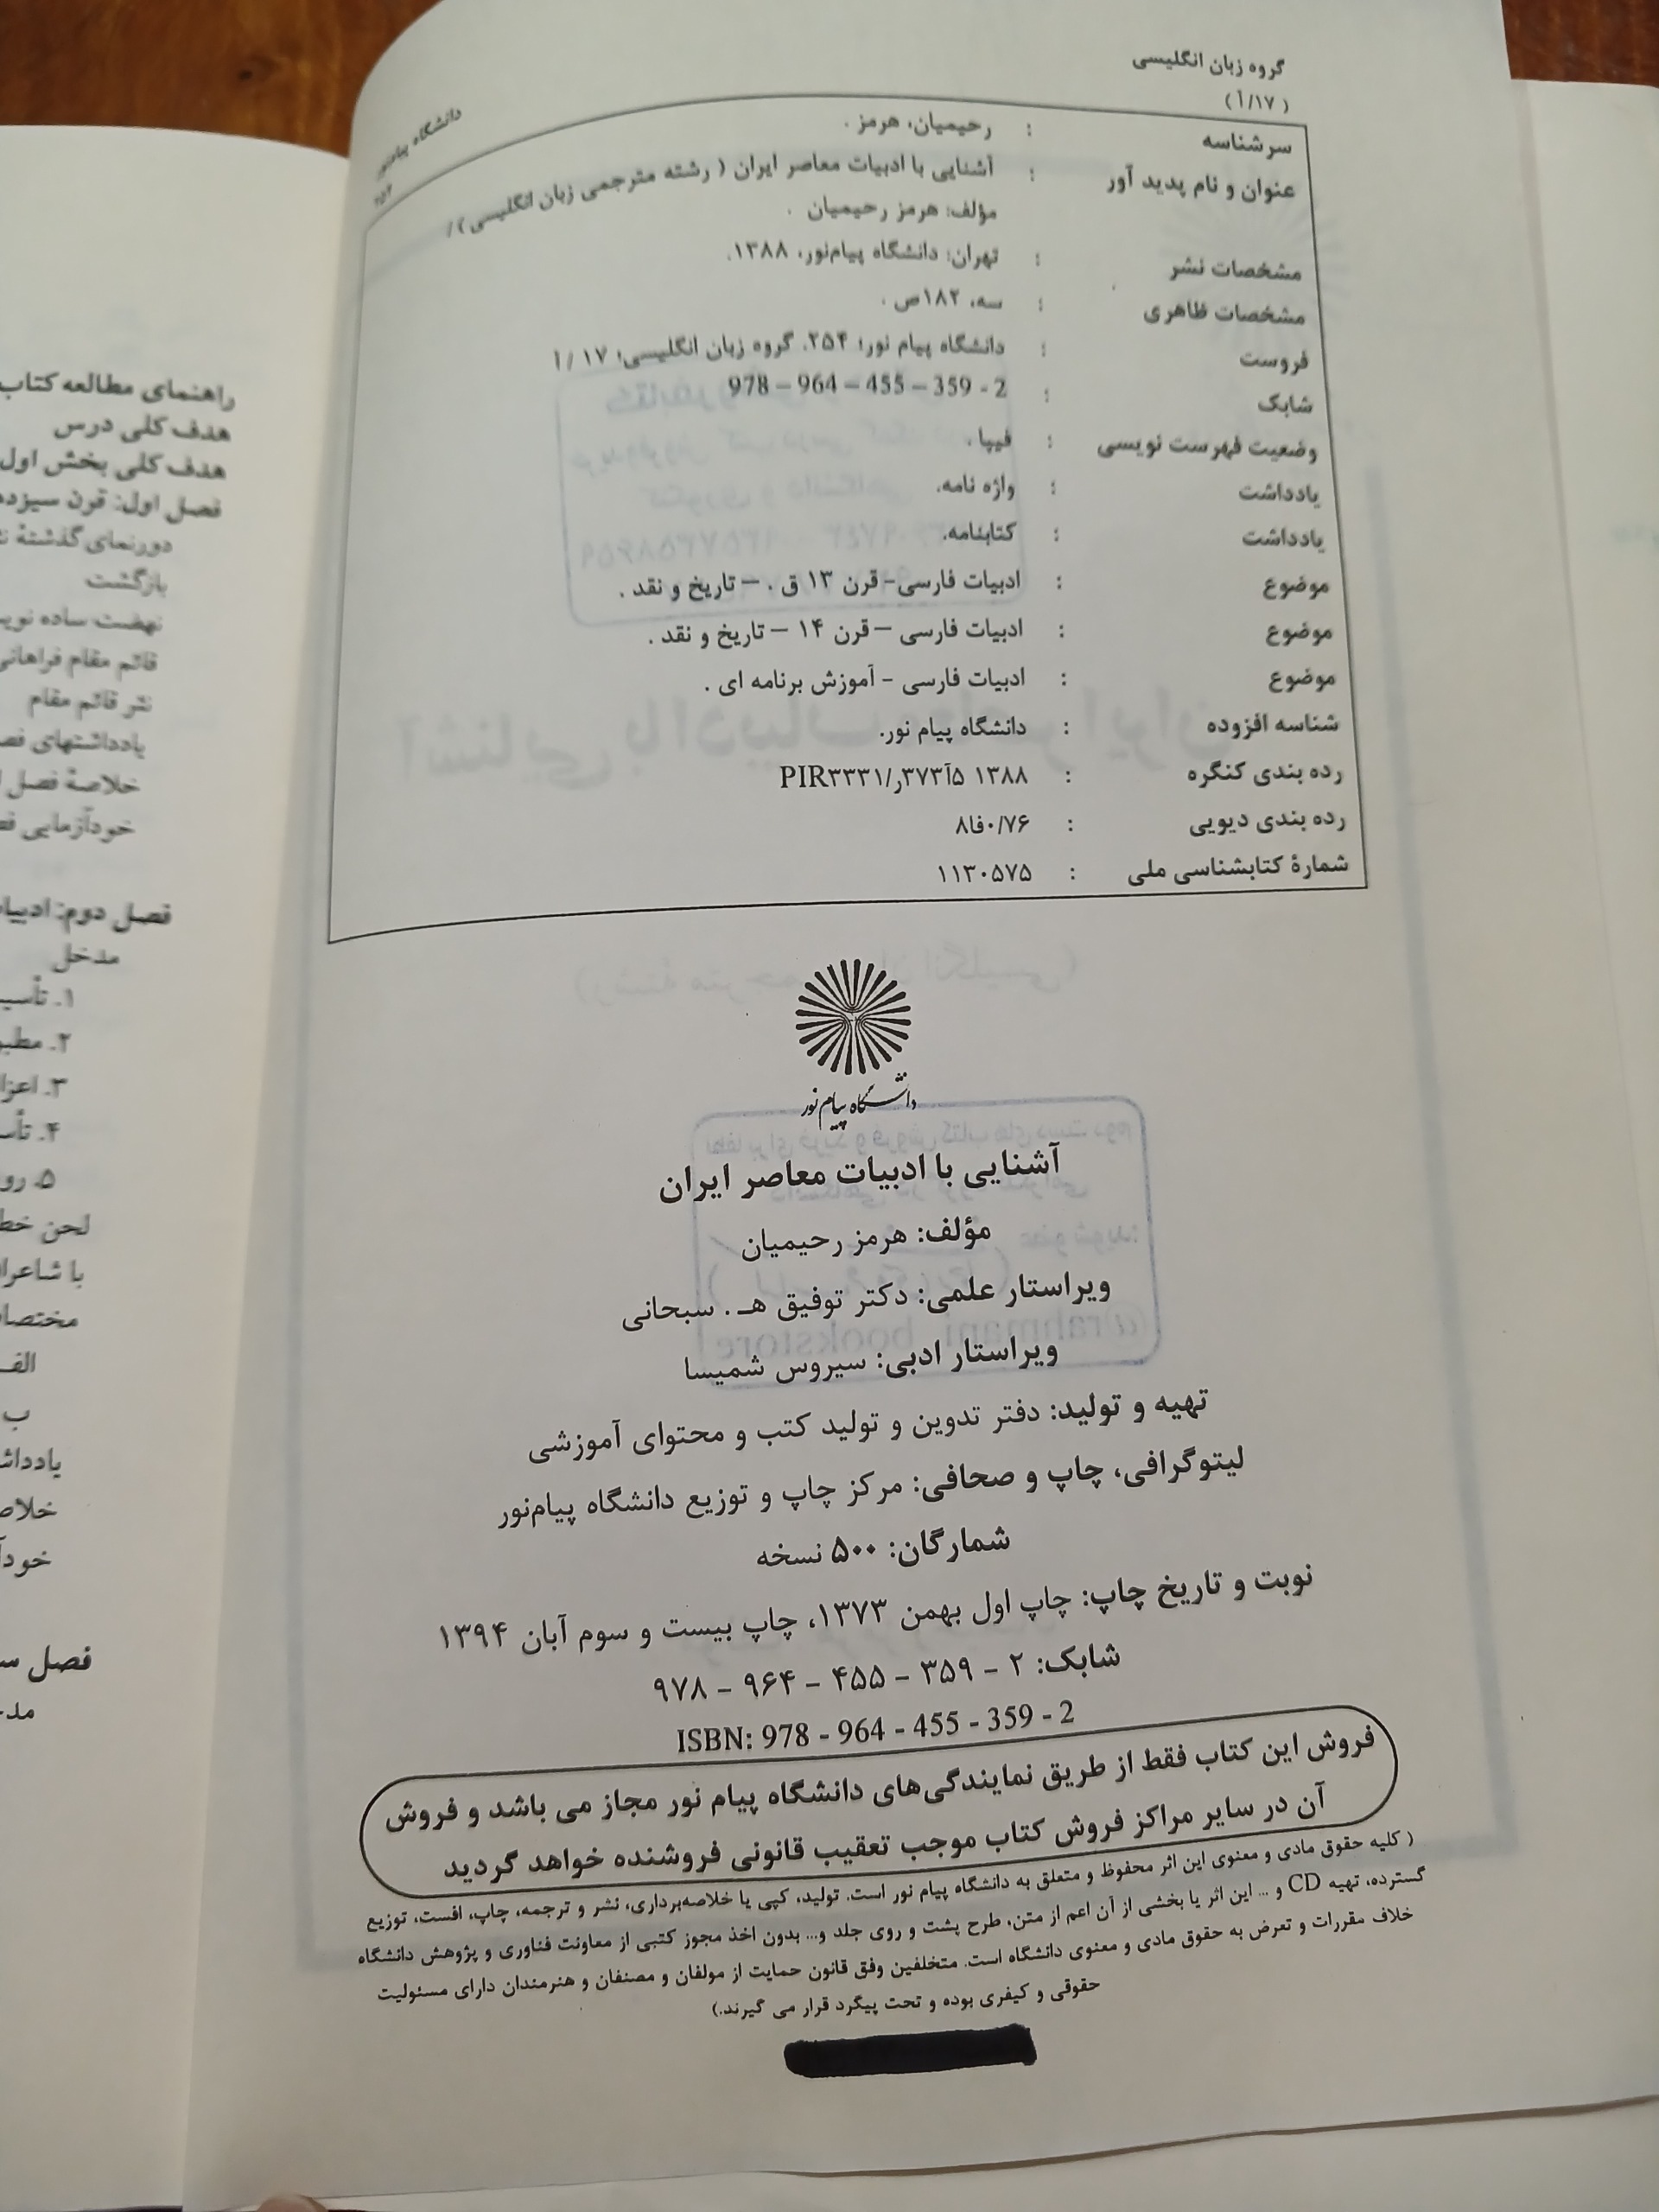 گروه زبان انگلیسی
( ۱۷/أ )
دانشگاه پیام‌نور
۲۵۴
سرشناسه : رحیمیان، هرمز .
عنوان و نام پدید آور : آشنایی با ادبیات معاصر ایران ( رشته مترجمی زبان انگلیسی )/
مؤلف: هرمز رحیمیان .
مشخصات نشر : تهران: دانشگاه پیام‌نور، ۱۳۸۸.
مشخصات ظاهری : سه، ۱۸۲ص .
فروست : دانشگاه پیام نور؛ ۲۵۴. گروه زبان انگلیسی؛ ۱۷ / أ
شابک : 978 – 964 – 455 – 359 - 2
وضعیت فهرست نویسی : فیپا .
یادداشت : واژه نامه.
یادداشت : کتابنامه.
موضوع : ادبیات فارسی- قرن ۱۳ ق . – تاریخ و نقد .
موضوع : ادبیات فارسی – قرن ۱۴ – تاریخ و نقد .
موضوع : ادبیات فارسی - آموزش برنامه ای .
شناسه افزوده : دانشگاه پیام نور.
رده بندی کنگره : PIR۳۳۳۱/ر۳۷۳آ۵ ۱۳۸۸
رده بندی دیویی : ۸فا۰/۷۶
شمارۀ کتابشناسی ملی : ۱۱۳۰۵۷۵
دانشگاه پیام نور
آشنایی با ادبیات معاصر ایران
مؤلف: هرمز رحیمیان
ویراستار علمی: دکتر توفیق هـ . سبحانی
ویراستار ادبی: سیروس شمیسا
تهیه و تولید: دفتر تدوین و تولید کتب و محتوای آموزشی
لیتوگرافی، چاپ و صحافی: مرکز چاپ و توزیع دانشگاه پیام‌نور
شمارگان: ۵۰۰ نسخه
نوبت و تاریخ چاپ: چاپ اول بهمن ۱۳۷۳، چاپ بیست و سوم آبان ۱۳۹۴
شابک: ۲ - ۳۵۹ - ۴۵۵ - ۹۶۴ - ۹۷۸
ISBN: 978 - 964 - 455 - 359 - 2
فروش این کتاب فقط از طریق نمایندگی‌های دانشگاه پیام نور مجاز می باشد و فروش
آن در سایر مراکز فروش کتاب موجب تعقیب قانونی فروشنده خواهد گردید
( کلیه حقوق مادی و معنوی این اثر محفوظ و متعلق به دانشگاه پیام نور است. تولید، کپی یا خلاصه‌برداری، نشر و ترجمه، چاپ، افست، توزیع
گسترده، تهیه CD و ... این اثر یا بخشی از آن اعم از متن، طرح پشت و روی جلد و... بدون اخذ مجوز کتبی از معاونت فناوری و پژوهش دانشگاه
خلاف مقررات و تعرض به حقوق مادی و معنوی دانشگاه است. متخلفین وفق قانون حمایت از مولفان و مصنفان و هنرمندان دارای مسئولیت
حقوقی و کیفری بوده و تحت پیگرد قرار می گیرند.)
راهنمای مطالعه کتاب
هدف کلی درس
هدف کلی بخش اول
فصل اول: قرن
دورنمای گذشتۀ
بازگشت
نهضت ساده
قائم مقام فراهانی
نثر قائم مقام
یادداشتهای
خلاصۀ فصل
خودآزمایی
فصل دوم:
مدخل
۱.
۲.
۳.
۴.
۵.
لحن
با
الف
ب
فصل